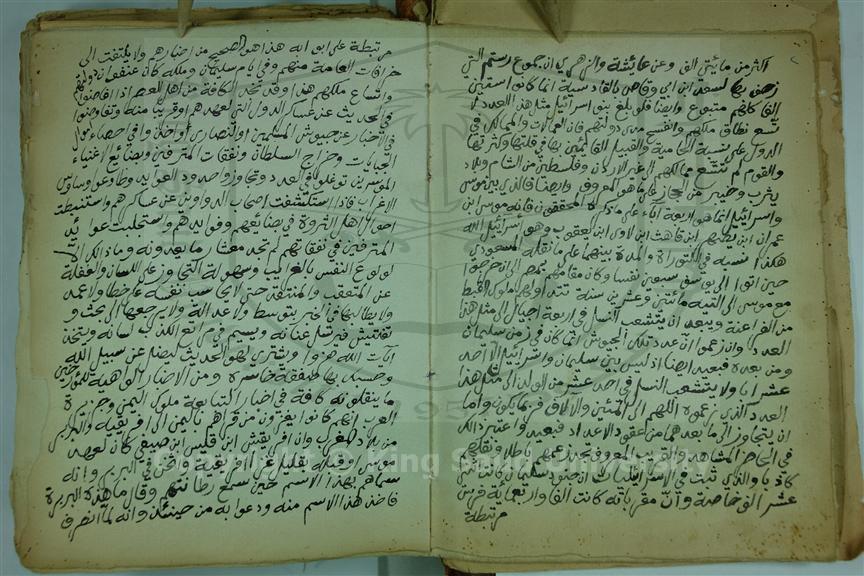 اكثر من مائتي الف وعن عايشة والزهري ان جموع رستم التي
زحف بها لسعد ابن ابي وقاص بالقادسية انما كانوا ستين
الفا كلهم متبوع وايضا فلو بلغ بنو اسرائيل مثل هذا العدد لا
تسع نطاق ملكهم وانفسح مدى دولتهم فان العمالات والممالك في
الدول على نسبة الحامية والقبيل القائمين بها في قلتها وكثرتها
والقوم لم تتسع ممالكهم الى غير الاردن وفلسطين من الشام وبلاد
يثرب وخيبر من الحجاز على ما هو المعروف وايضا فالذي بين موسى
واسرائيل انما هو اربعة آباء على ما ذكره المحققون فانه موسى ابن
عمران ابن يصهر ابن قاهث ابن لاوى ابن يعقوب وهو اسرائيل الله
هكذا نسبه في التوراة والمدة بينهما على ما نقله المسعودي
حين اتوا الى يوسف سبعين نفسا وكان مقامهم بمصر الى ان خرجوا
مع موسى الى التيه مائتين وعشرين سنة تتداولهم ملوك القبط
من الفراعنة ويبعد ان يتشعب النسل في اربعة اجيال الى مثل هذا
العدد وان زعموا ان عدد تلك الجيوش انما كان في زمن سليمان
ومن بعده فبعيد ايضا اذ ليس بين سليمان واسرائيل الا احد
عشر ابا ولا يتشعب النسل في احد عشر من الولد الى مثل هذا
العدد الذي زعموه اللهم الى المئتين والالاف فربما يكون واما
ان يتجاوز الى ما بعدهما من عقود الاعداد فبعيد واعتبر ذلك
في الحاضر المشاهد والقريب المعروف تجد زعمهم باطلا ونقلهم
كاذبا والذي ثبت في الاسرائيليات ان جنود سليمان كانت اثنى
عشر الف خاصة وان مقرباته كانت الفا واربعمائة فرس
مرتبطة
مرتبطة على ابوابه هذا هو الصحيح من اخبارهم ولا يلتفت الى
خرافات العامة منهم وفي ايام سليمان وملكه كان عنفوان دولتهم
واتساع ملكهم هذا وقد نجد الكافة من اهل العصر اذا افاضوا
في الحديث عن عساكر الدول التي لعهدهم او قريبا منه وتفاوضوا
في الاخبار عن جيوش المسلمين او النصارى او اخذوا في احصاء اموال
الجبايات وخراج السلطان ونفقات المترفين وبضائع الاغنياء
الموسرين توغلوا في العدد وتجاوزوا حدود العوايد وطاوعوا وساوس
الاغراب فاذا استكشفت اصحاب الدواوين عن عساكرهم واستنبطت
احوال اهل الثروة في بضائعهم وفوايدهم واستجليت عوايد
المترفين في نفقاتهم لم تجد معشار ما يعدونه وما ذلك الا
لولوع النفس بالغرايب وسهولة التجاوز على اللسان والغفلة
عن المتعقب والمنتقد حتى لا يحاسب نفسه على خطا ولا عمد
ولا يطالبها في الخبر بتوسط ولا عدالة ولا يرجعها الى بحث و
تفتيش فيرسل عنانه ويسيم في مراتع الكذب لسانه ويتخذ
آيات الله هزوا ويشتري لهو الحديث ليضل عن سبيل الله
وحسبك بها صفقة خاسرة ومن الاخبار الواهية للمورخين
ما ينقلونه كافة في اخبار التبابعة ملوك اليمن وجزيرة
العرب انهم كانوا يغزون من قراهم باليمن الى افريقية والبربر
من بلاد المغرب وان افريقش ابن قيس ابن صيفي كان لعهد
موسى وقبله بقليل غزا افريقية واثخن في البربر وانه
سماهم بهذا الاسم حين سمع رطانتهم وقال ما هذه البربرة
فاخذ هذا الاسم منه ودعوا به من حينئذ وانه لما انصرف